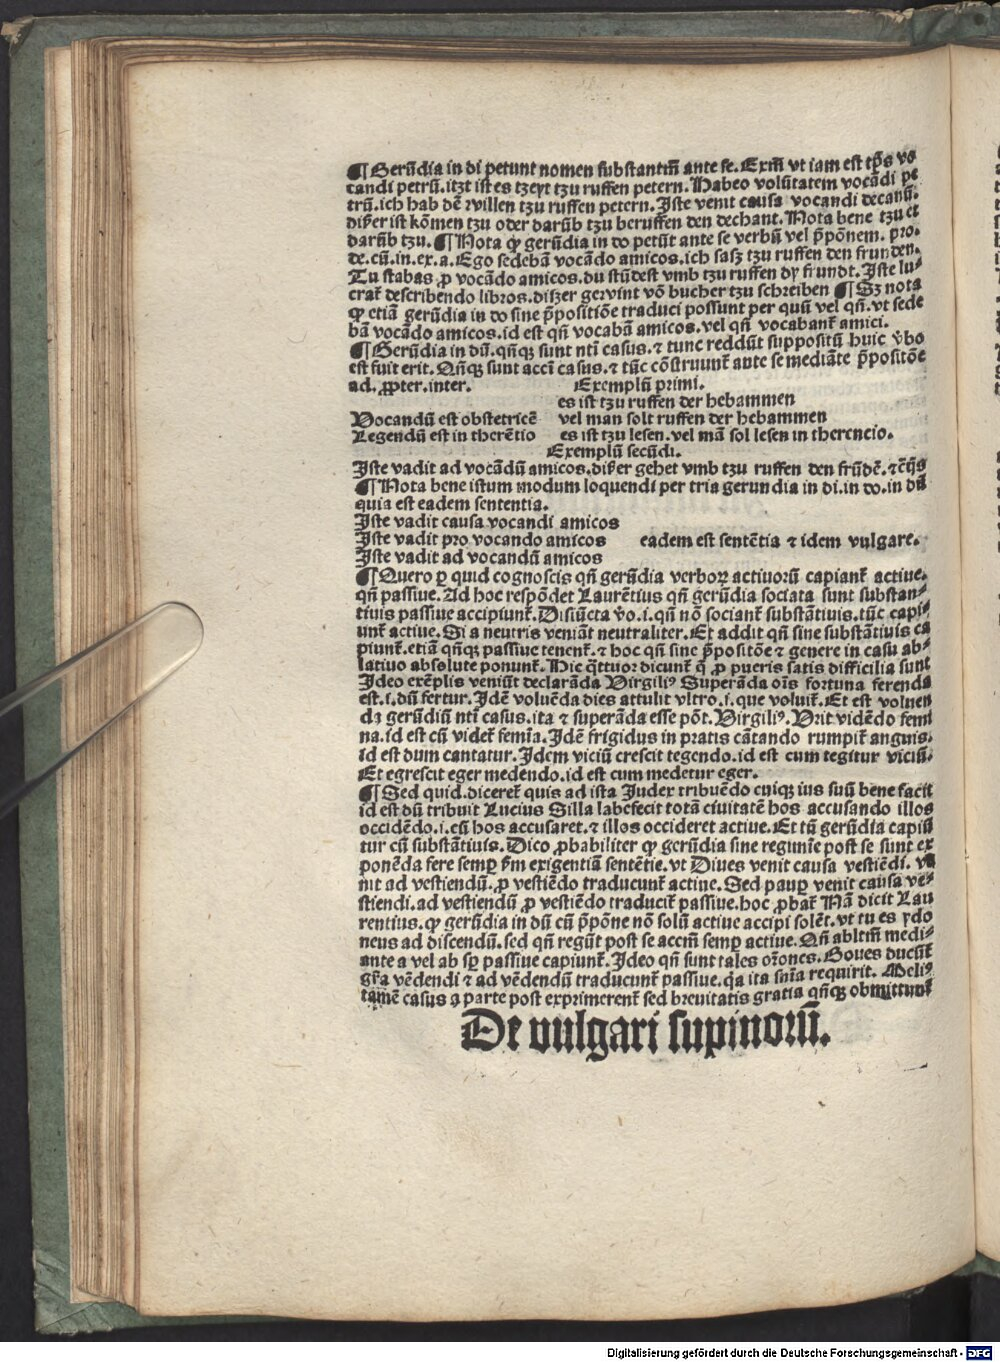 ¶ Gerūdia in di petunt nomen substantiū ante se. Exm̄ vt iam est tp̄s vo
candi petrū. itzt ist es tzeyt tzu ruffen petern. Habeo volūtatem vocādi pe
trū. ich hab dē willen tzu ruffen petern. Iste venit causa vocandi decanū.
diszer ist kōmen tzu oder darūb tzu beruffen den dechant. Nota bene tzu et
darūb tzu. ¶ Nota ꝙ gerūdia in do petūt ante se verbū vel p̄pōnem. pro.
de. cū. in. ex. a. Ego sedebā vocādo amicos. ich sasz tzu ruffen den frunden.
Tu stabas ꝓ vocādo amicos. du stūdest vmb tzu ruffen dy frundt. Iste lu
crat̄ describendo libros. diszer gervint vō bucher tzu schreiben ¶ Sꝫ nota
ꝙ etiā gerūdia in do sine p̄positiōe traduci possunt per quū vel qn̄. vt sede
bā vocādo amicos. id est qn̄ vocabā amicos. vel qn̄ vocabant̄ amici.
¶ Gerūdia in dū. qn̄qꝫ sunt nt̄i casus. ⁊ tunc reddūt suppositū huic v̄bo
est fuit erit. Qn̄qꝫ sunt acc̄i casus. ⁊ tūc cōstruunt̄ ante se mediāte p̄positōe
ad. ꝓpter. inter. Exemplū primi.
es ist tzu ruffen der hebammen
Vocandū est obstetricē vel man solt ruffen der hebammen
Legendū est in therētio es ist tzu lesen. vel mā sol lesen in therencio.
Exemplū secūdi.
Iste vadit ad vocādū amicos. diszer gehet vmb tzu ruffen den frūdē.
¶ Nota bene istum modum loquendi per tria gerundia in di. in do. in dū
quia est eadem sententia.
Iste vadit causa vocandi amicos
Iste vadit pro vocando amicos eadem est sentētia ⁊ idem vulgare.
Iste vadit ad vocandū amicos
¶ Quero ꝑ quid cognoscis qn̄ gerūdia verboꝝ actiuorū capiant̄ actiue.
qn̄ passiue. Ad hoc respōdet Laurētius qn̄ gerūdia sociata sunt substan⸗
tiuis passiue accipiunt̄. Disiūcta v̄o. i. qn̄ nō sociant̄ substātiuis. tūc capi⸗
unt̄ actiue. Si a neutris veniāt neutraliter. Et addit qn̄ sine substātiuis ca
piunt̄. etiā qn̄qꝫ passiue tenent̄. ⁊ hoc qn̄ sine p̄positōe ⁊ genere in casu ab⸗
latiuo absolute ponunt̄. Hic q̄ttuor dicunt̄ q̄ ꝓ pueris satis difficilia sunt
Ideo exēplis veniūt declarāda Virgiliꝰ Superāda oīs fortuna ferenda
est. i. dū fertur. Idē voluēda dies attulit vltro. i. que voluit̄. Et est voluen
dꝫ gerūdiū nt̄i casus. ita ⁊ superāda esse pōt. Virgiliꝰ. Vrit vidēdo femi
na. id est cū videt̄ femīa. Idē frigidus in pratis cātando rumpit̄ anguis.
id est dum cantatur. Idem viciū crescit tegendo. id est cum tegitur viciū.
Et egrescit eger medendo. id est cum medetur eger.
¶ Sed quid. diceret̄ quis ad ista Iudex tribuēdo cuiqꝫ ius suū bene facit
id est dū tribuit Lucius Silla labefecit totā ciuitatē hos accusando illos
occidēdo. i. cū hos accusaret. ⁊ illos occideret actiue. Et tū gerūdia capiū
tur cū substātiuis. Dico ꝓbabiliter ꝙ gerūdia sine regimīe post se sunt ex
ponēda fere semꝑ ẜm exigentiā sentētie. vt Diues venit causa vestiēdi. ve
nit ad vestiendū. ꝓ vestiēdo traducunt̄ actiue. Sed pauꝑ venit causa ve⸗
stiendi. ad vestiendū ꝓ vestiēdo traducit̄ passiue. hoc ꝓbat̄ Nā dicit Lau
rentius. ꝙ gerūdia in dū cū p̄pōne nō solū actiue accipi solēt. vt tu es ydo
neus ad discendū. sed qn̄ regūt post se accm̄ semꝑ actiue. Qn̄ abltm̄ medi⸗
ante a vel ab sꝑ passiue capiunt̄. Ideo qn̄ sunt tales or̄ones. Boues ducūt̄
gr̄a vēdendi ⁊ ad vēdendū traducunt̄ passiue. qa ita sn̄ia requirit. Meliꝰ
tamē casus a parte post exprimerent̄ sed breuitatis gratia qn̄qꝫ obmittunt̄
De vulgari supinorū.
Digitalisierung gefördert durch die Deutsche Forschungsgemeinschaft - DFG